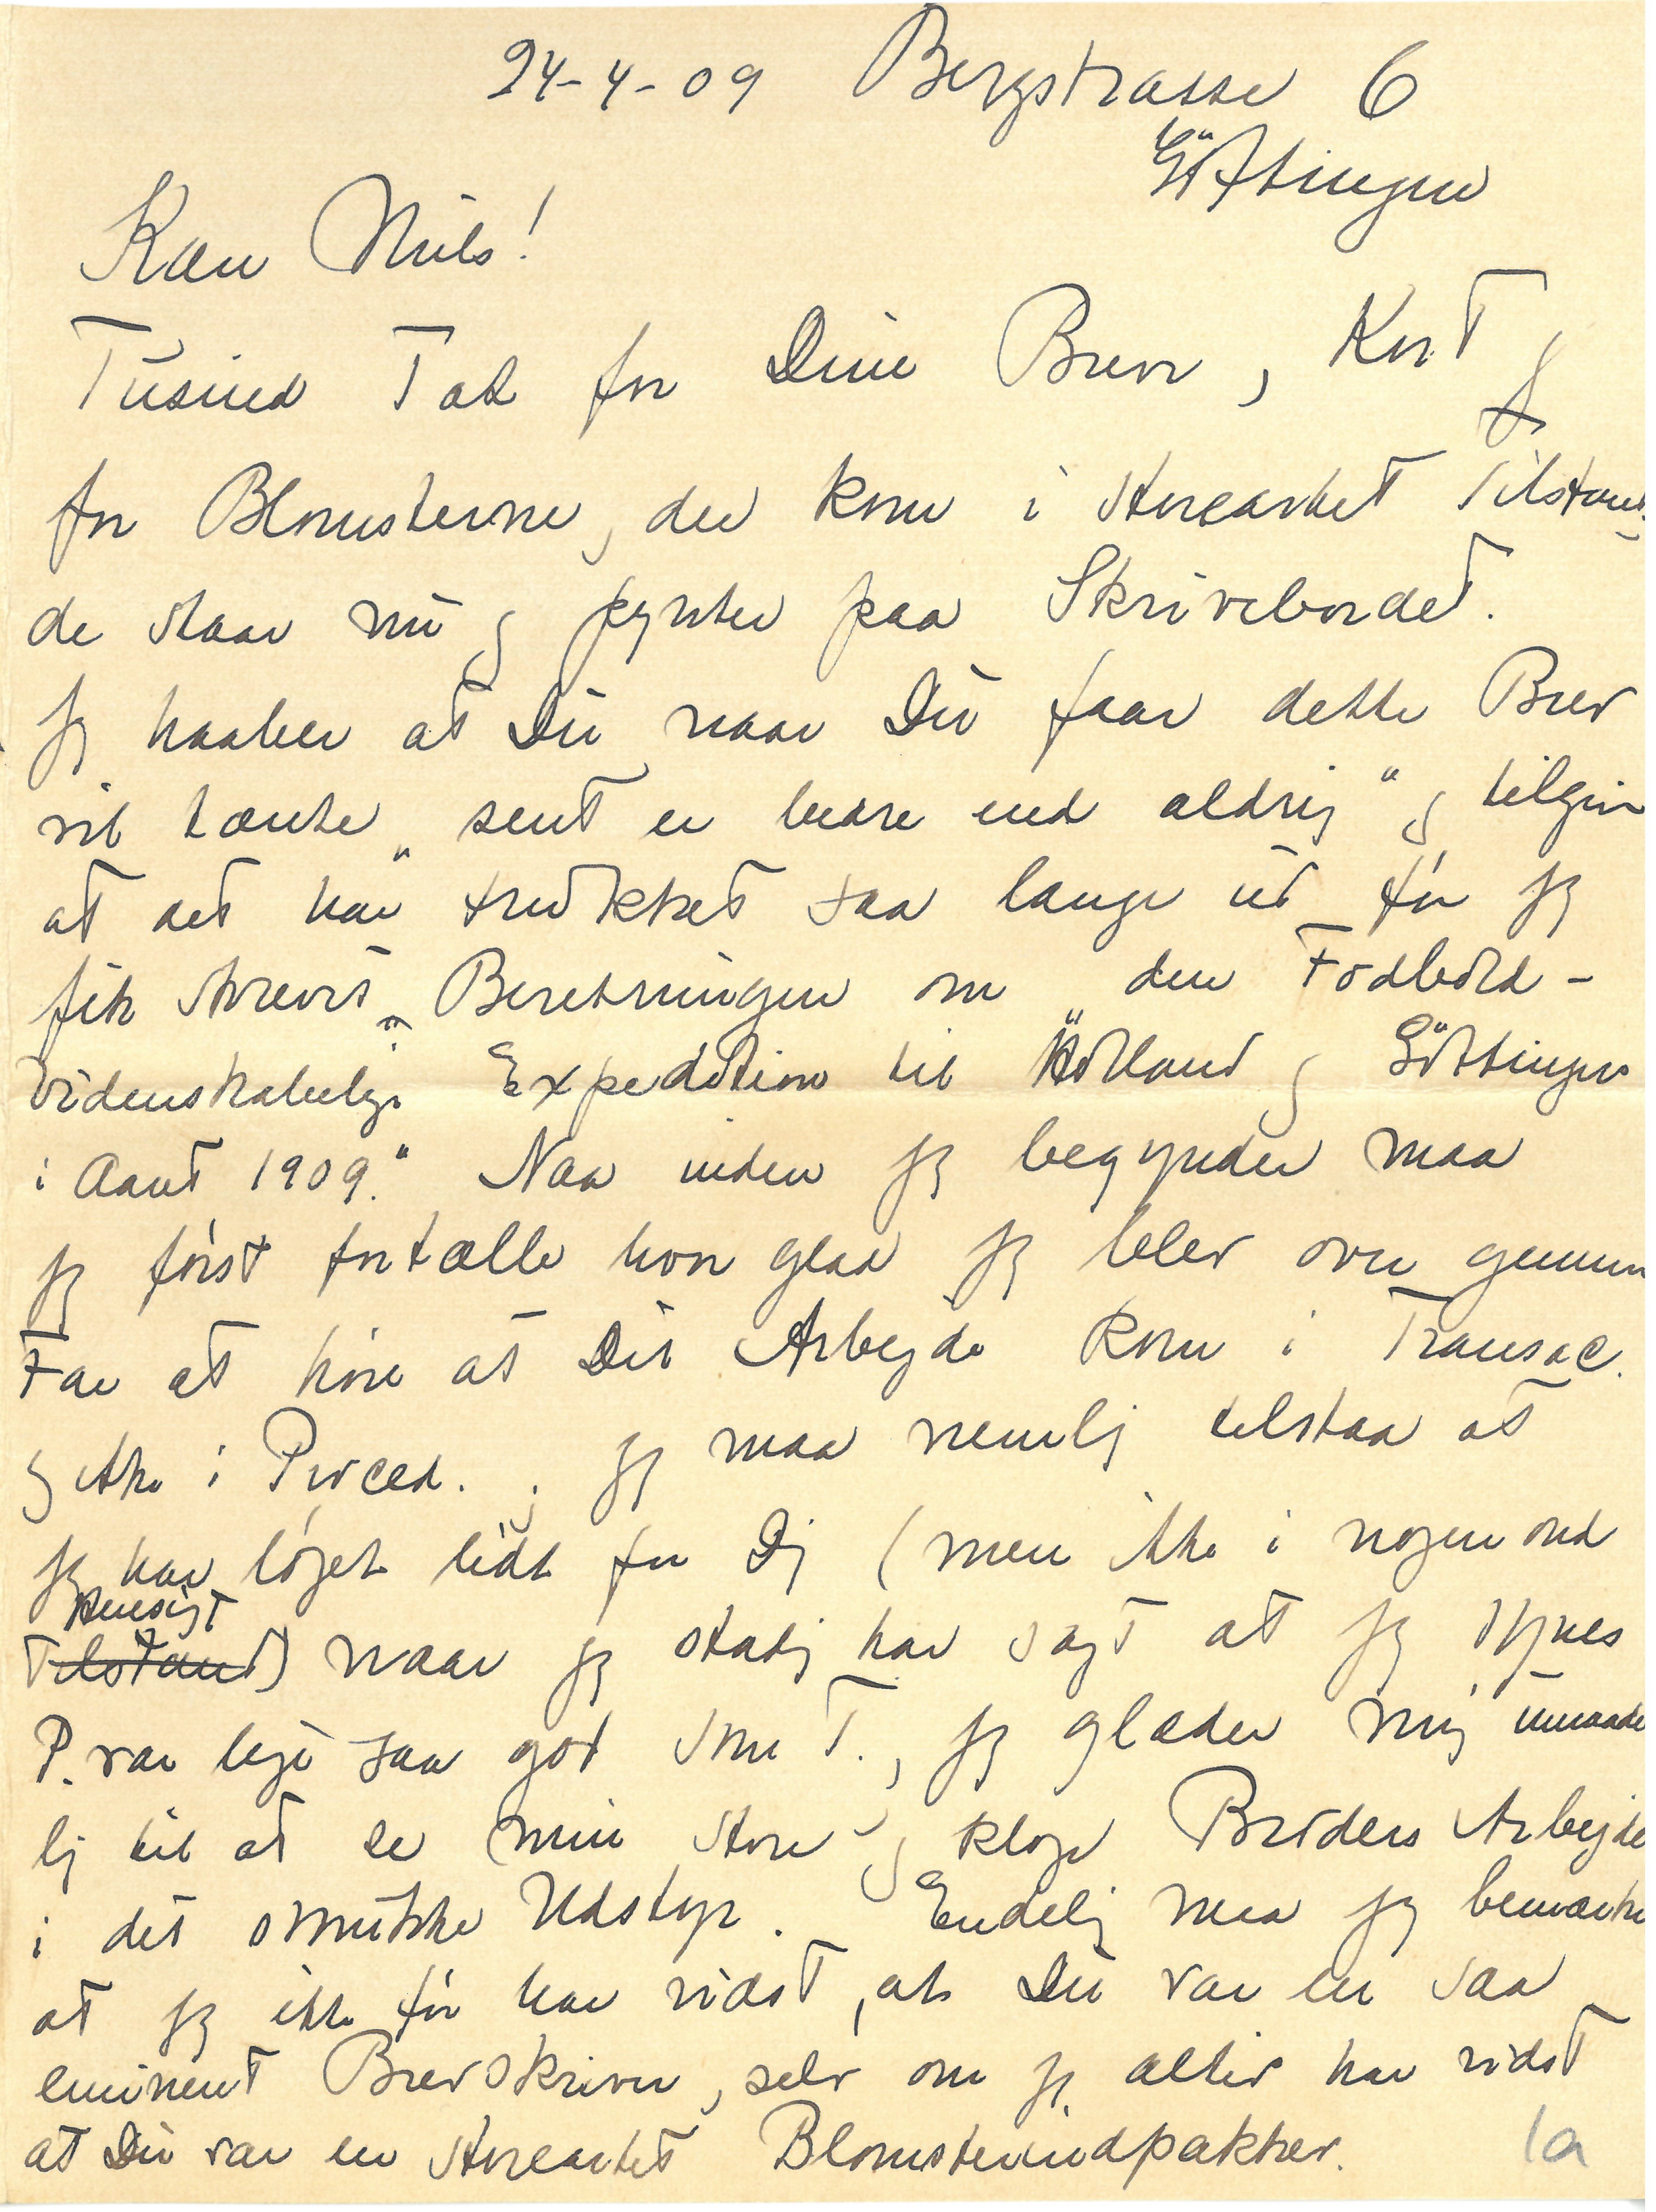 24-4-09 Bergstrasse 6
Göttingen
Kære Niels!
Tusind Tak for Dine Breve, Kort og
for Blomsterne, der kom i storeartet Tilstand
de staar nu og pynter paa Skrivebordet.
Jeg haaber at Du naar Du faar dette Brev
vil tænke "sent er bedre end aldrig" og tilgive
at det har trukket saa længe ud før jeg
fik skrevet Beretningen om "den Fodbold-
videnskabelige Expedition til Holland og Göttingen
i Aaret 1909." Naa inden jeg begynder maa
jeg først fortælle hvor glad jeg blev over gennem
Far at høre at Dit Arbejde kom i Transac.
og ikke i Proced. ; jeg maa nemlig tilstaa at
jeg har løjet lidt for Dig (men ikke i nogen ond
Hensigt
Tilstand) naar jeg stadig har sagt at jeg syntes
P. var lige saa god som T., jeg glæder mig umaade
lig til at se min store og kloge Broders Arbejde
i det smukke Udstyr. Endelig maa jeg bemærke
at jeg ikke før har vidst, at Du var en saa
eminent Brevskriver, selv om jeg altid har vidst
at Du var en storeartet Blomsterindpakker.
1a